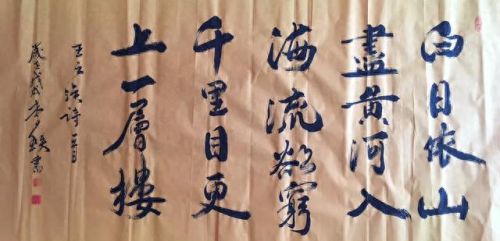 白日依山
盡黄河入
海流欲窮
千里目更
上一層樓
王之渙詩一首
歲在戊戌 書